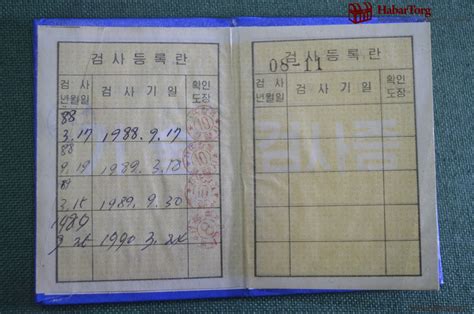 HabarTorg
검사등록란
검 사
년월일
검 사 기 일
확인
도장
88
3.17 1988. 9. 17
88
9.19 1989. 3.18
3.15 1989. 9. 30
1989
9.25 1990 3. 24
검사등록란
08-11
검 사
년월일
검 사 기 일
확인
도장